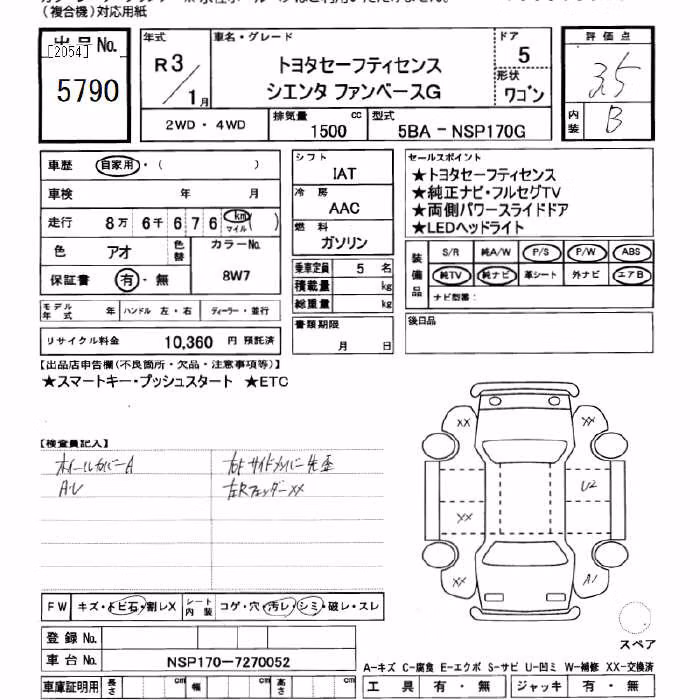 (複合機)対応用紙
出品No.
[2054]
5790
年式
R3/1月
車名・グレード
トヨタセーフティセンス
シエンタ ファンベースG
ドア
5
形状
ワゴン
2WD・4WD
排気量
1500 cc
型式
5BA - NSP170G
評価点
3.5
内装
B
車歴 自家用・( )
車検 年 月
走行 8万 6千 6 7 6 km マイル ( )
色 アオ 色替
カラーNo.
8W7
保証書 有・無
モデル年式 年 ハンドル 左・右 ディーラー・並行
リサイクル料金 10,360 円 預託済
シフト
IAT
冷房
AAC
燃料
ガソリン
乗車定員 5 名
積載量 kg
総重量 kg
書類期限
月 日
セールスポイント
★トヨタセーフティセンス
★純正ナビ・フルセグTV
★両側パワースライドドア
★LEDヘッドライト
装備品
S/R 純A/W P/S P/W ABS
純TV 純ナビ 革シート 外ナビ エアB
ナビ型番:
後日品
【出品店申告欄(不良箇所・欠品・注意事項等)】
★スマートキー・プッシュスタート ★ETC
【検査員記入】
ホイールカバーA
AU
右Fサイドカバー
左RフェンダーXX
XX
XX
U2
XX
XX
A1
FW キズ・トビ石・割レX シート内装 コゲ・穴・汚レ・シミ・破レ・スレ
登録No.
車台No. NSP170-7270052
車庫証明用 長さ cm 幅 cm 高さ cm
スペア
A-キズ C-腐食 E-エクボ S-サビ U-凹ミ W-補修 XX-交換済
工具 有・無 ジャッキ 有・無